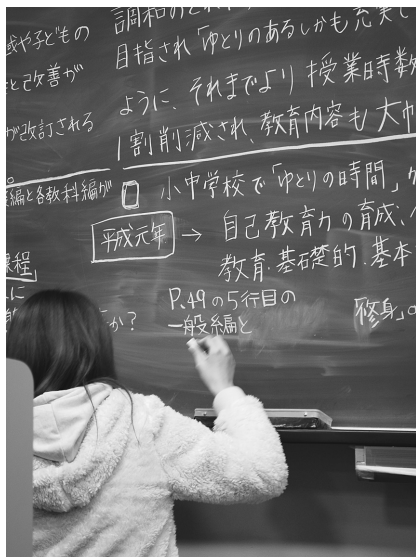 域や子どもの
と改善が
が改訂される
編と各教科編が
課程」
に
か?
調和のとれ
目指され「ゆとりのあるしかも充実し
ように、それまでより授業時数
1割削減され、教育内容も大
小中学校で「ゆとりの時間」
平成元年 → 自己教育力の育成、
教育.基礎的.基本
P.49の5行目の
一般編と
「修身」の